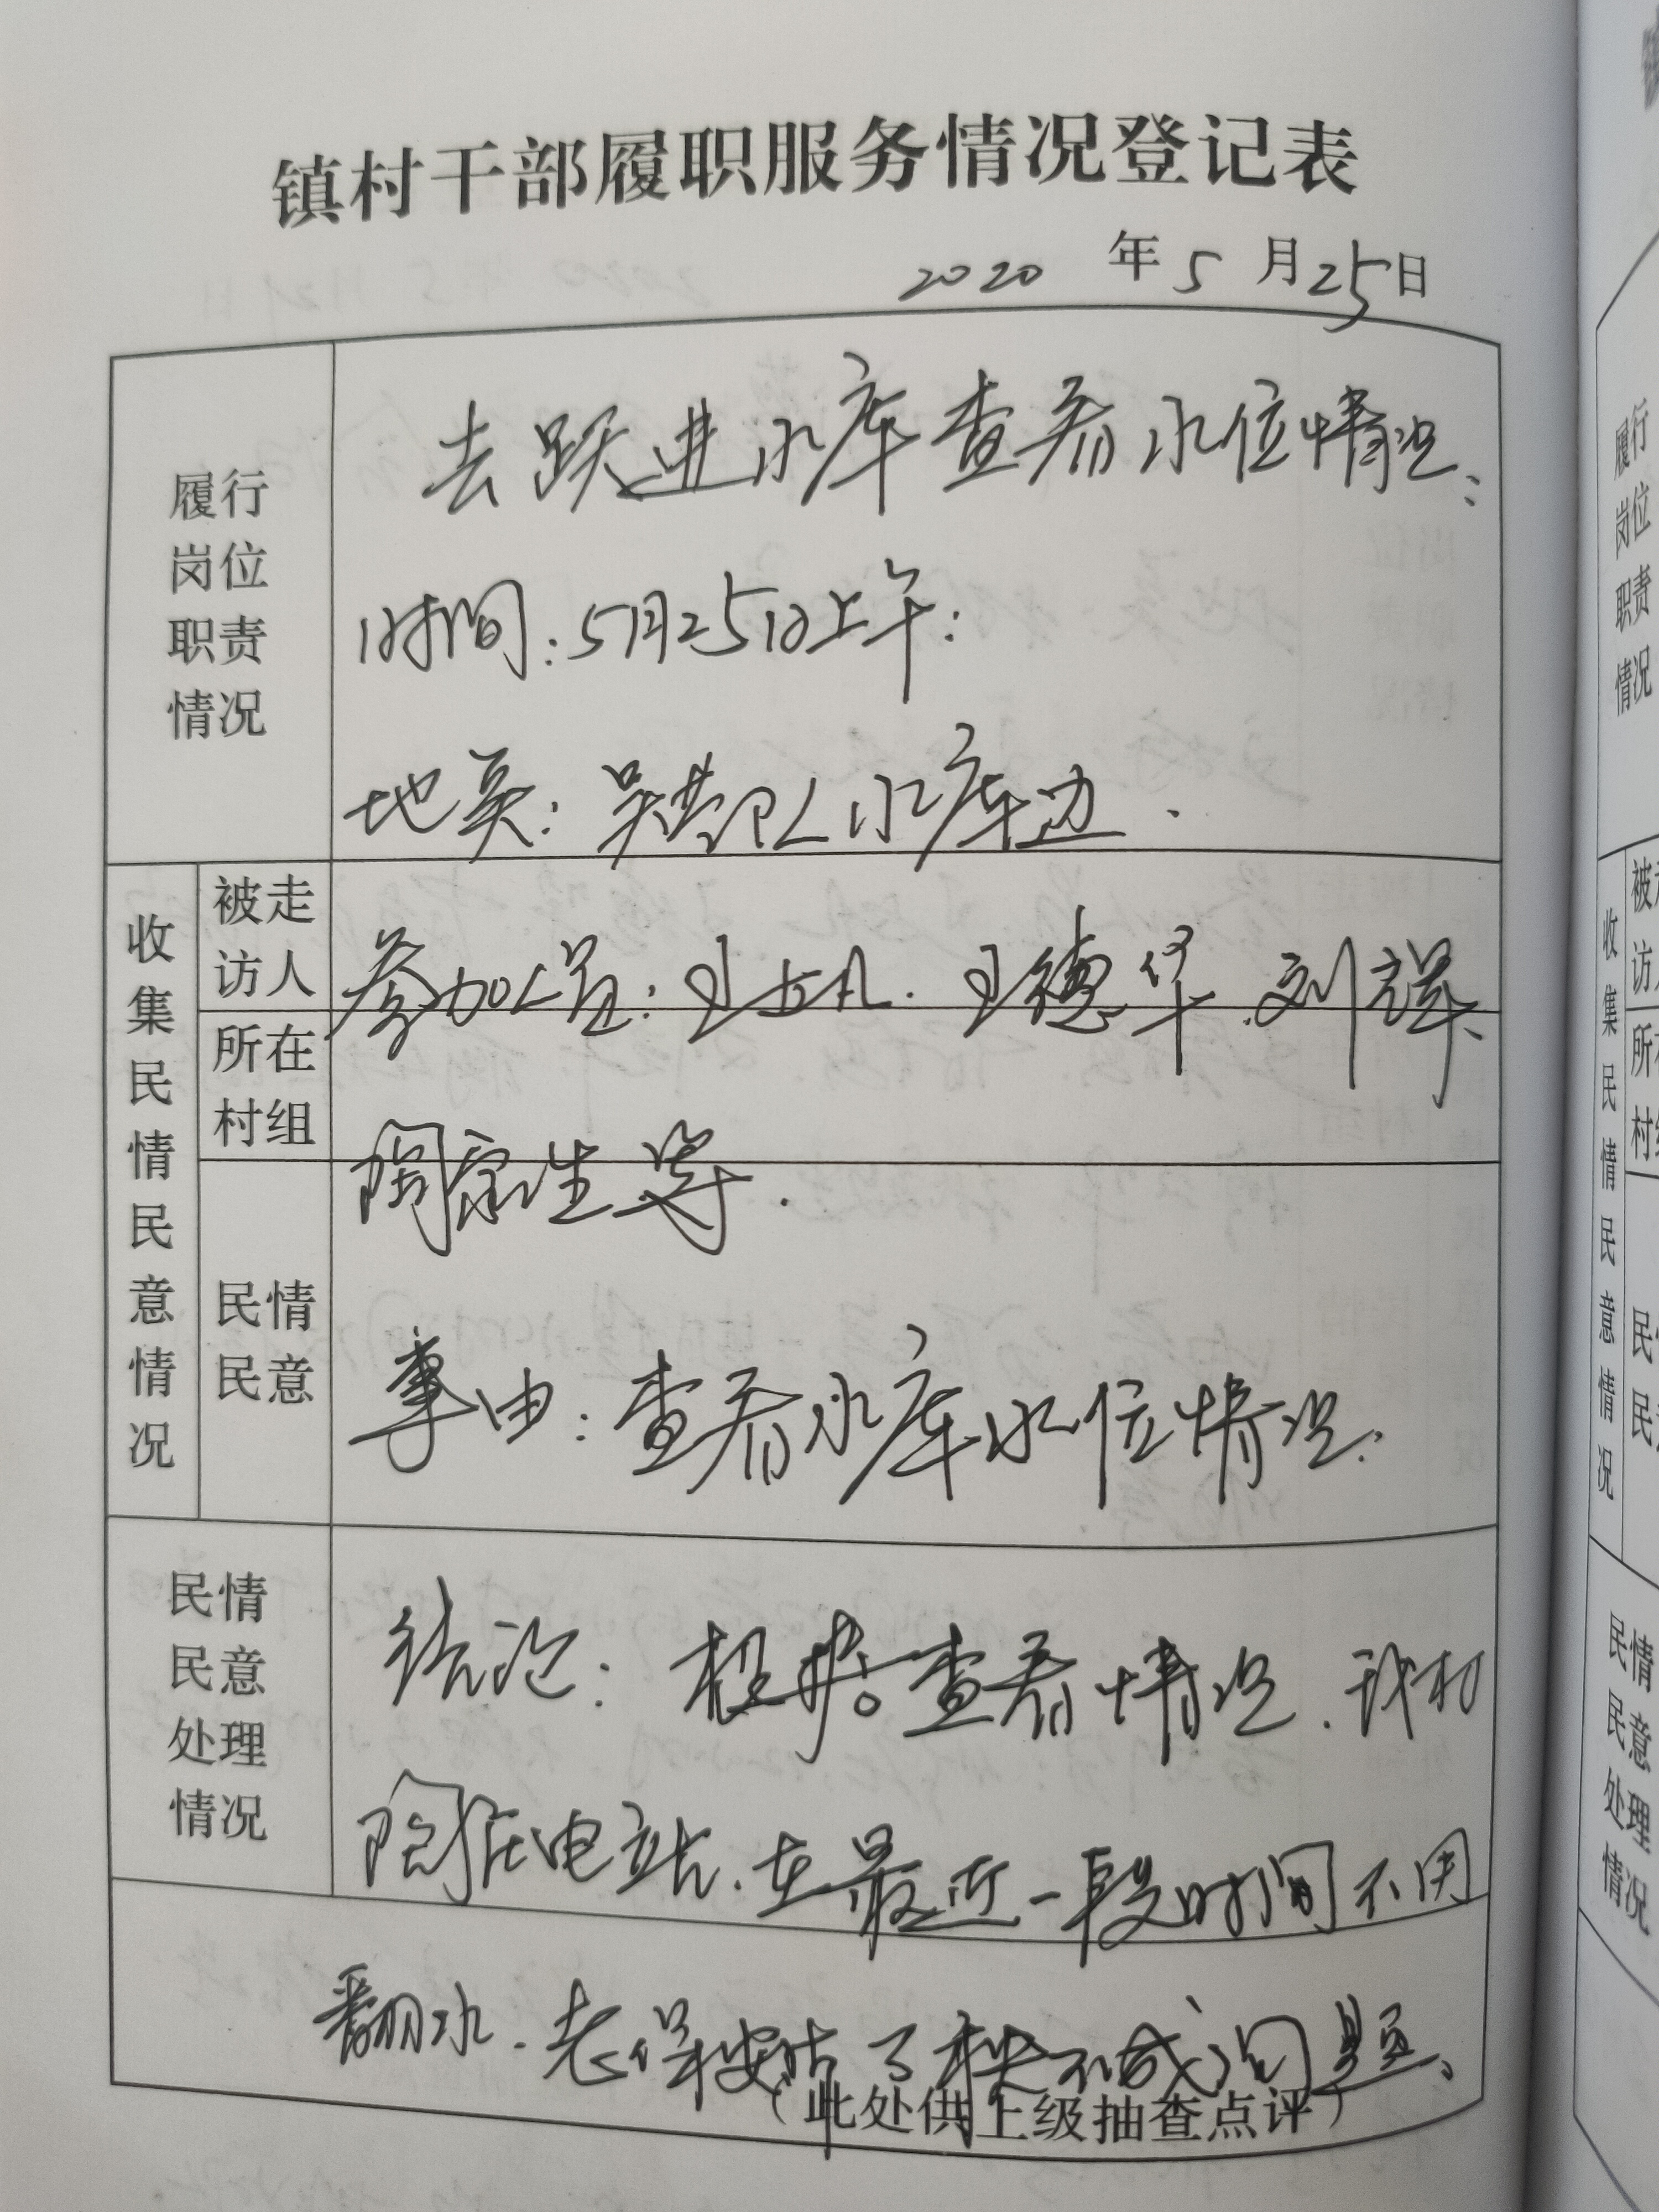 镇村干部履职服务情况登记表
2020 年 5 月 25 日
履行岗位职责情况
去跃进水库查看水位情况:
时间:5月25日上午:
地点: 吴 队水库边.
收集民情民意情况
被走访人
参加人员: 王 . 王德华.刘
所在村组
陶家生等.
民情民意
事由:查看水库水位情况.
民情民意处理情况
结论: 根据查看情况.我村
陶庄电站.在最近一段时间不用
翻水. 了秧不成问题、
(此处供上级抽查点评)
履行
岗位
职责
情况
收集民情民意情况
民情
民意
处理
情况